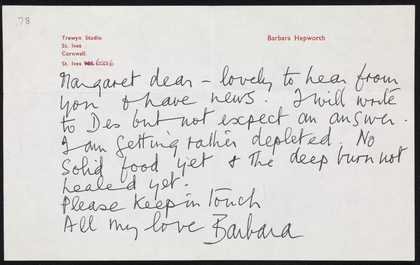 78
Trewyn Studio
St. Ives
Cornwall
St. Ives 6226
Barbara Hepworth
Margaret dear – lovely to hear from
you & have news. I will write
to Des but not expect an answer.
I am getting rather depleted. No
Solid food yet & the deep burn not
healed yet.
Please keep in touch
All my love Barbara